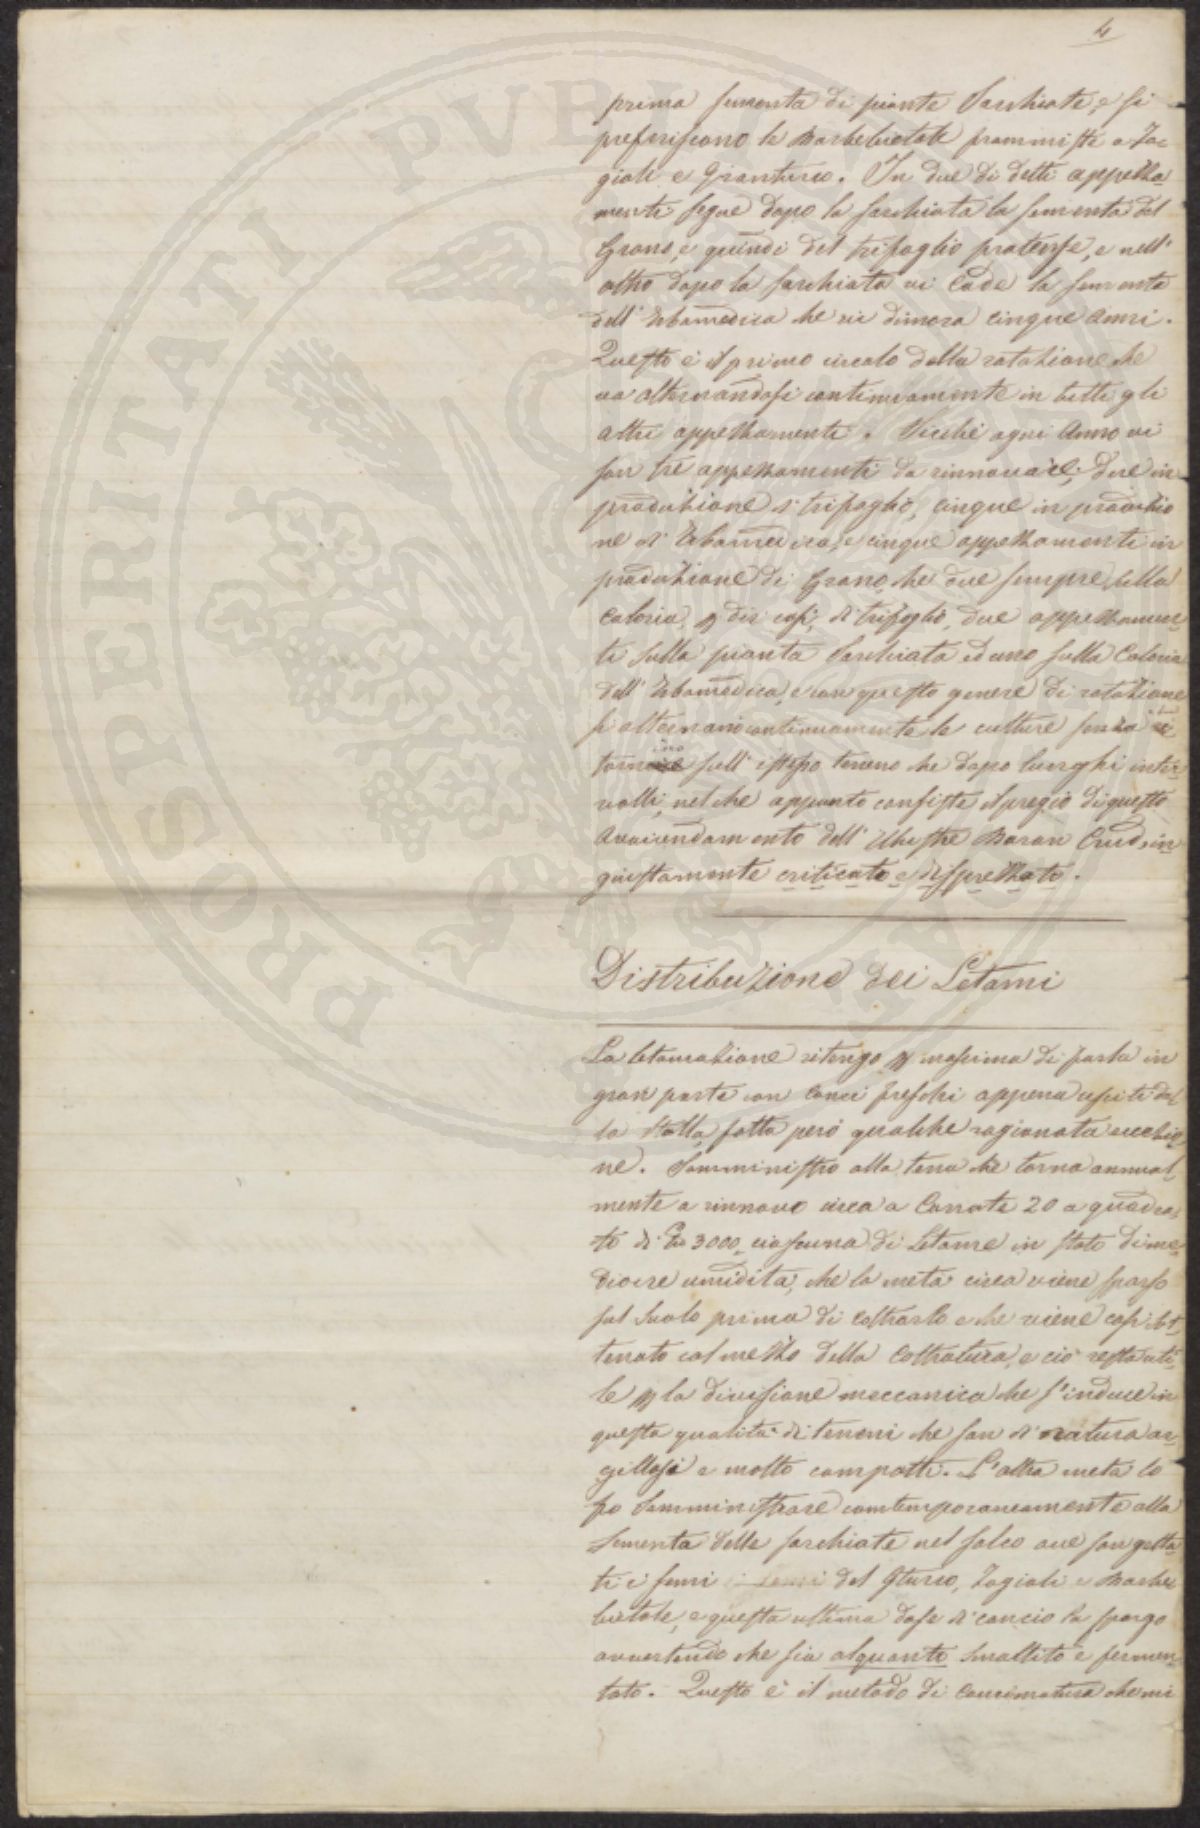 4
prima sementa di piante Sarchiate, e si
preferiscono le Barbebietole frammiste a Fa=
gioli e Granturco. In due di detti appezza
menti segue dopo la sarchiata la sementa del
Grano, e quindi del trifoglio pratense, e nell'
altro dopo la sarchiata vi cade la sementa
dell'Erbamedica che vi dimora cinque Anni.
Questo è il primo circolo della rotazione che
va alternandosi continuamente in tutti gli
altri appezzamenti. Sicché ogni Anno vi
son tre appezzamenti da rinnovare, due in
produzione di trifoglio, cinque in produzio
ne di Erbamedica, e cinque appezzamenti in
produzione di Grano, che due sempre sulla
Caloria, p dir così, di trifoglio, due appezzamen=
ti sulla pianta Sarchiata ed uno sulla Caloria
dell'Erbamedica, e con questo genere di rotazione
si alternano continuamente le culture senza
tornino sull'istesso terreno che dopo lunghi inter
valli, nel che appunto consiste il pregio di questo
Avvicendamento dell'Illustre Baron Crud, in
giustamente criticato e disprezzato.
Distribuzione dei Letami
La letamazione ritengo p massima di farla in
gran parte con Conci freschi appena usciti dal
la Stalla, fatta però qualche ragionata eccezio
ne. Somministro alla terra che torna annual
mente a rinnovo circa a Carrate 20 a quadra
to di 3000 ciascuna di Letame in stato di me
diocre umidità, che la metà circa viene sparso
sul Suolo prima di Coltrarlo e che viene così Sot
terrato col mezzo della Coltratura, e ciò resta uti
le p la divisione meccanica che s'induce in
questa qualità di terreni che son di natura ar
gillosi e molto compatti. L'altra metà lo
fo Somministrare contemporaneamente alla
Sementa delle sarchiate nel solco ove son getta
ti i semi del Gturco, Fagioli e Barbe
bietole, e questa ultima dose di concio la spargo
avvertendo che sia alquanto smaltito e fermen
tato. Questo è il metodo di Concimatura che mi
PROSPERITATI PVBLICAE